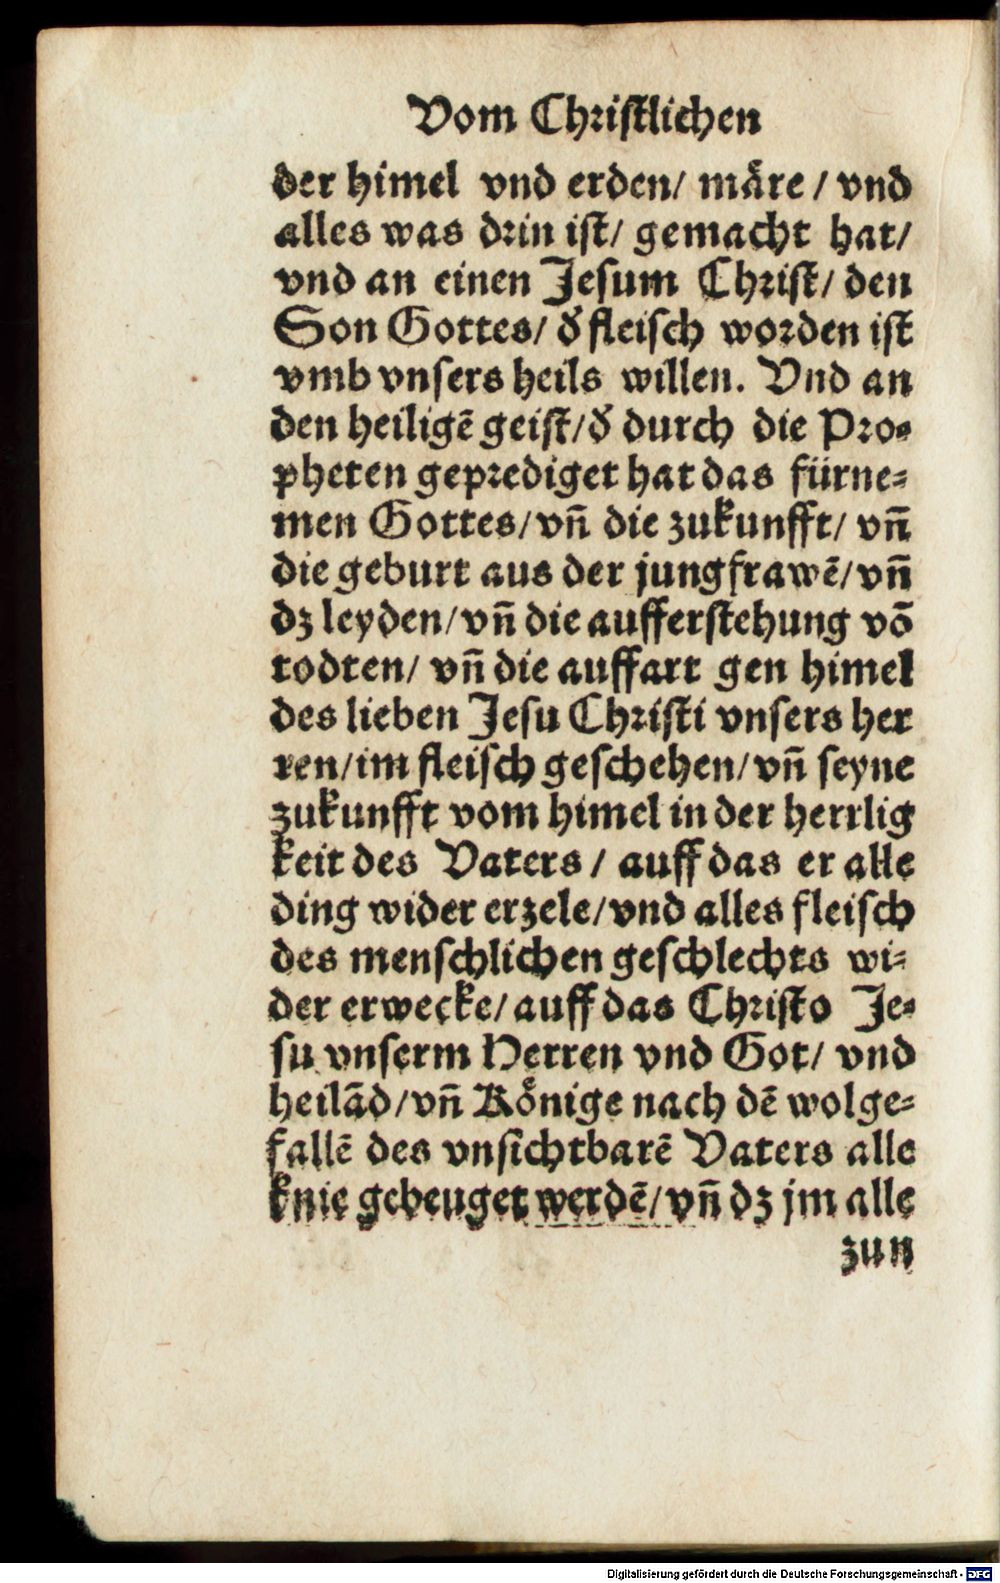 Vom Christlichen
der himel vnd erden/ märe / vnd
alles was drin ist/ gemacht hat/
vnd an einen Jesum Christ/ den
Son Gottes/ d̕ fleisch worden ist
vmb vnsers heils willen. Vnd an
den heiligē geist/ d̕ durch die Pro-
pheten geprediget hat das fürne-
men Gottes/ vñ die zukunfft/ vñ
die geburt aus der jungfrawē/ vñ
dz leyden/ vñ die aufferstehung vō
todten/ vñ die auffart gen himel
des lieben Jesu Christi vnsers her
ren/ im fleisch geschehen/ vñ seyne
zukunfft vom himel in der herrlig
keit des Vaters / auff das er alle
ding wider erzele/ vnd alles fleisch
des menschlichen geschlechts wi-
der erwecke/ auff das Christo Je-
su vnserm Herren vnd Got/ vnd
heilād/ vñ Könige nach dē wolge-
fallē des vnsichtbarē Vaters alle
knie gebeuget werdē/ vñ dz jm alle
zun
Digitalisierung gefördert durch die Deutsche Forschungsgemeinschaft - DFG